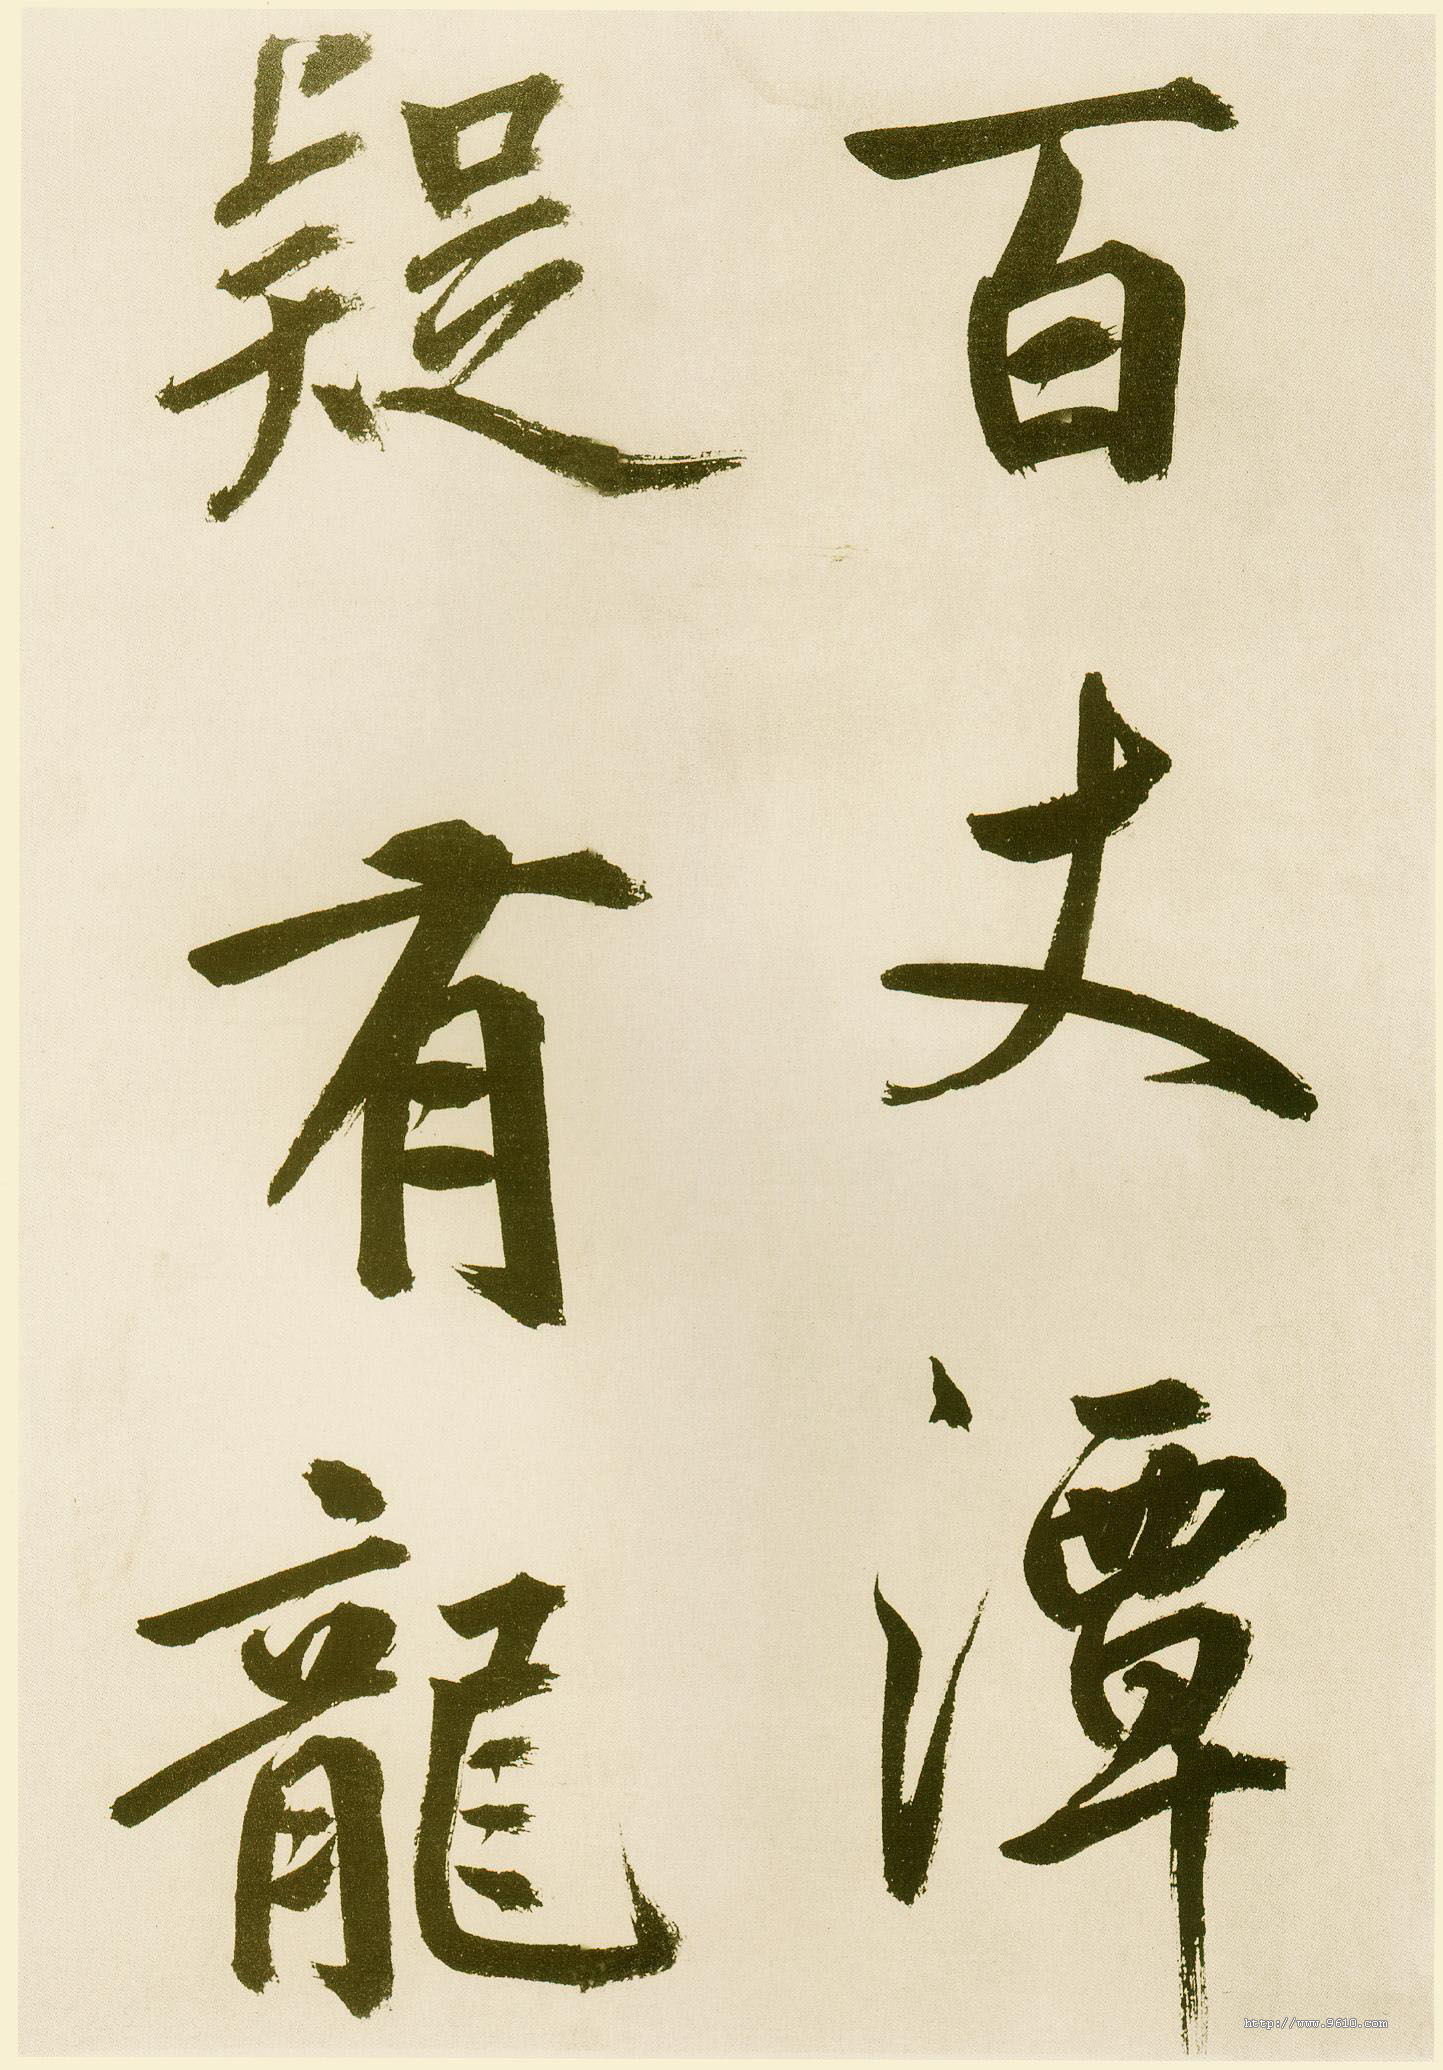 百丈潭
疑有龍
http://www.9610.com